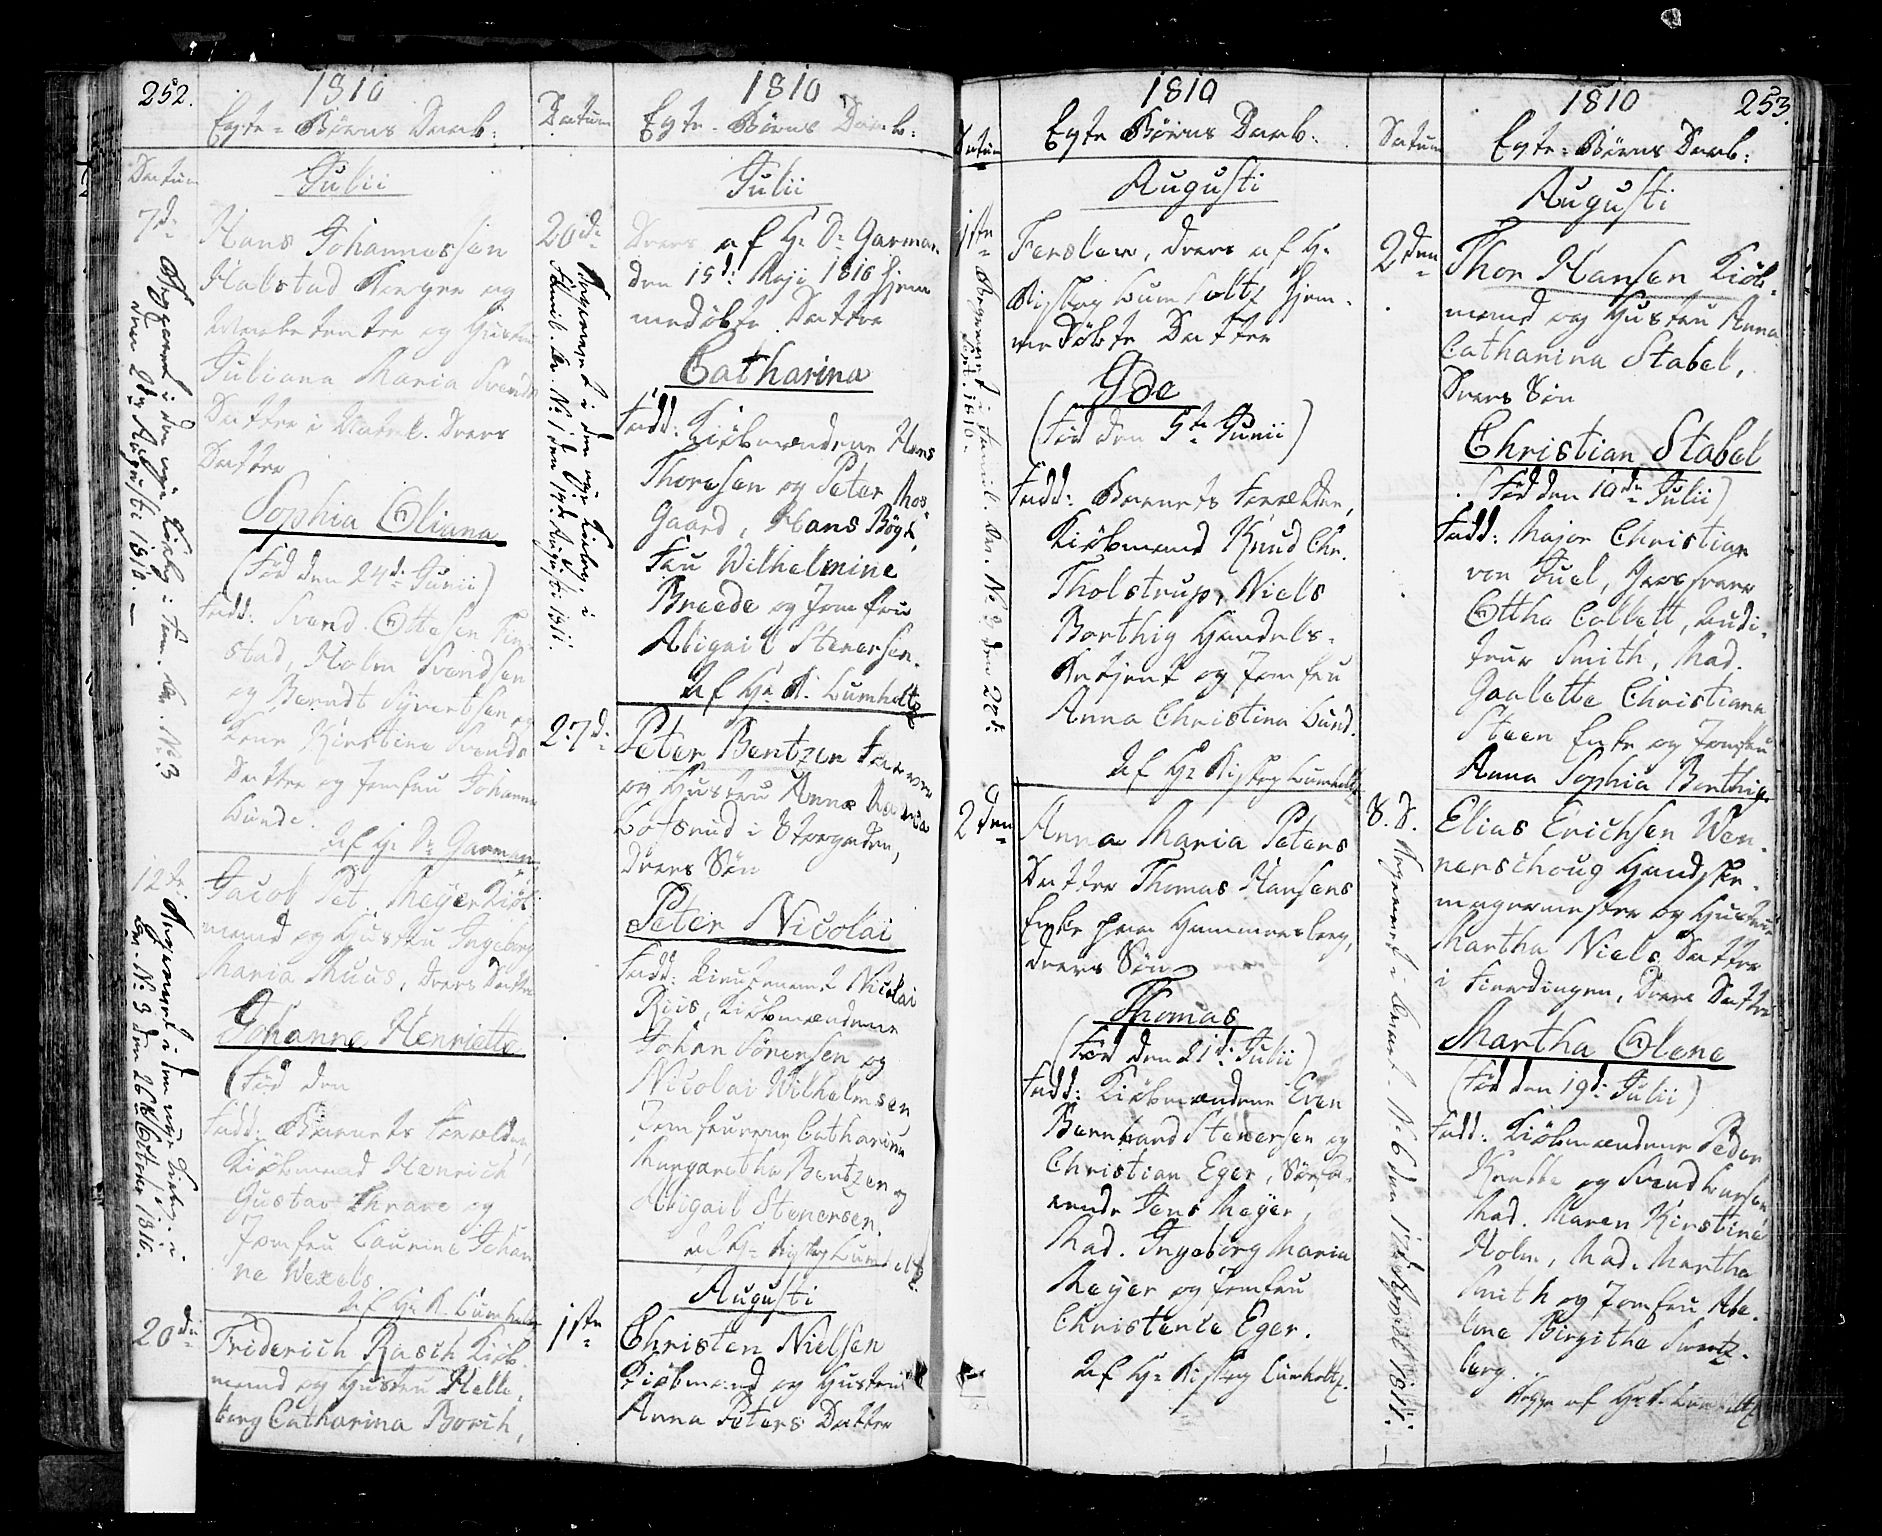 252.
1810
Egte-Børns Daab:
Datum
Julii
7de
Hans Johannessen
Halstad Borger og
og Hustru
Juliana Maria Svends
Datter i Vaterl. deres
Datter
Sophia Oliana
(Fød den 24d: Junii)
Fadd: Svend Ottesen
stad, Holm Svendsen
og Berndt Syvertsen og
Kone Kirstine Svends
Datter og Jomfru Johanna
Lunde.
Af Hr Dr Garman
Begravet i den nye Kirkeg: i Fam. Qv. No: 3
den 2den Augusti 1810.
12te
Jacob Pet. Meyer Kiøb-
mand og Hustru Ingeborg
Maria Muus, deres Datter
Johanne Henriette
(Fød den
Fadd: Barnets Forældre,
Kiøbmand Henrich
Gustav Thrane og
Jomfru Laurine Johan
ne Wexels.
Af Hr R. Lumholtz
Begravet i den nye Kirkeg: i
Qv. No: 3 den 26de October 1810.
20de
Friderich Rasch Kiøb-
mand og Hustru Helle-
borg Catharina Borch,
1810
Datum
Egte-Børns Daab:
Julii
20de
deres af Hr Dr Garman
den 15d: Maji 1810 hjem
medøbte Datter
Catharina
Fadd: Kiøbmændene Hans
Thoresen og Peter Mos-
Gaard, Hans Bøgh,
Fru Wilhelmine
Breede og Jomfru
Abigail Stenersen.
Af Hr R. Lumholtz
Begravet i den nye Kirkeg: i
Famil. Qv. No 1 den 14de Augusti 1811.
27d:
Peter Bentzen Farver
og Hustru Anna Maria
Lofsrud i Storgaden,
deres Søn
Peter Nicolai
Fadd: Lieutenant Nicolai
Riis, Kiøbmændene
Johan Sørensen og
Nicolai Wilhelmsen,
Jomfruerne Catharina
Margaretha Bentzen og
Abigail Stenersen.
Af Hr Rispcap Lumholtz
Augusti
1ste
Christen Nielsen
Kiøbmand og Hustru
Anna Peters Datter
1810
Datum
Egte Børns Daab:
Augusti
1ste
Ferslew, deres af Hr
Lumholtz hjem-
medøbte Datter
Ide
(Fød den 5te Junii)
Fadd: Barnets Forældre,
Kiøbmand Knud Chr.
Tholstrup, Niels
Borthig Handels-
Betjent og Jomfru
Anna Christina Lund.
Af Hr Lumholtz
Begravet i Famil. Qv. No 3 den 20d:
Sept. 1810.
2den
Anna Maria Peters
Datter Thomas Hansens
Enke paa Hammersborg,
deres Søn
Thomas
(Fød den 21d: Julii)
Fadd: Kiøbmændene Even
Bernhard Stenersen og
Christian Eger, Søefa-
rende Jens Meyer,
Mad. Ingeborg Maria
Meyer og Jomfru
Christence Eger.
Af Hr Lumholtz.
1810
253.
Datum
Egte-Børns Daab:
Augusti
2den
Thor Hansen Kiøb-
mand og Hustru Anna
Catharina Stabel,
deres Søn
Christian Stabel
(Fød den 10de Julii)
Fadd: Major Christian
von Juel, Grosserer
Ottho Collett, Audi-
teur Smith, Mad.
Gaulette Christiana
Steen Enke og Jomfru
Anna Sophia Borthig.
8. d.
Elias Erichsen Wen-
nerschoug Handske-
magermester og Hustru
Martha Niels Datter
i Fierdingen, deres Datter
Martha Olene
(Fød den 19d: Julii)
Fadd: Kiøbmændene Peder
og Svend Larsen,
Mad. Maren Kirstine
Holm, Mad. Martha
Smith og Jomfru Abe-
lone Birgithe Swartz-
berg.
Begge af Hr R. Lumholtz
Begravet i Qvart. No 6 den 1ste April 1811.